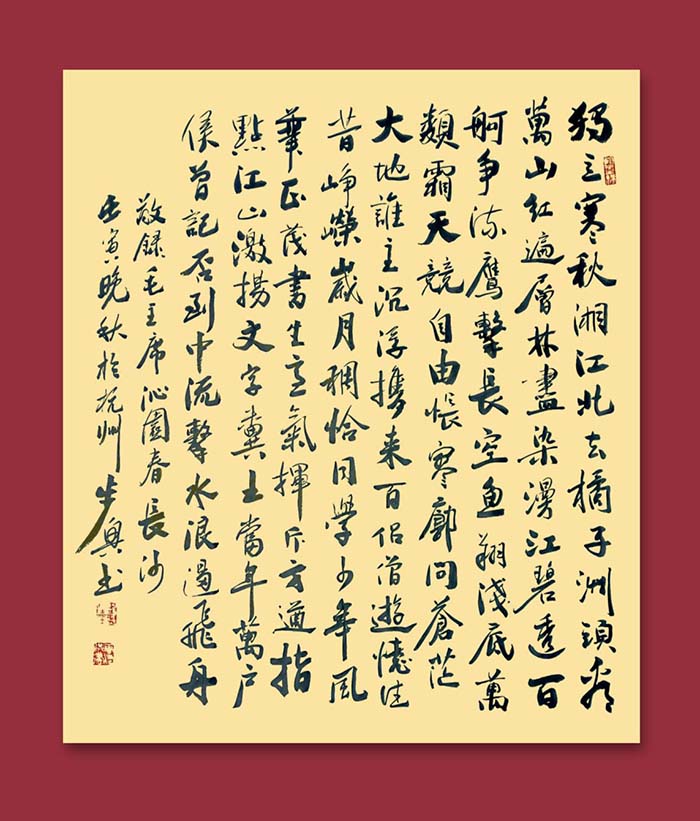 獨立寒秋湘江北去橘子洲頭看
萬山紅遍層林盡染漫江碧透百
舸争流鷹擊長空魚翔淺底萬
類霜天競自由悵寥廓問蒼茫
大地誰主沉浮攜来百侣僧遊憶往
昔崢嶸歲月稠恰同學少年風
華正茂書生意氣揮斥方遒指
點江山激揚文字糞土當年萬户
侯曾記否到中流擊水浪遏飛舟
敬録毛主席沁園春長沙
壬寅晚秋於杭州步興书